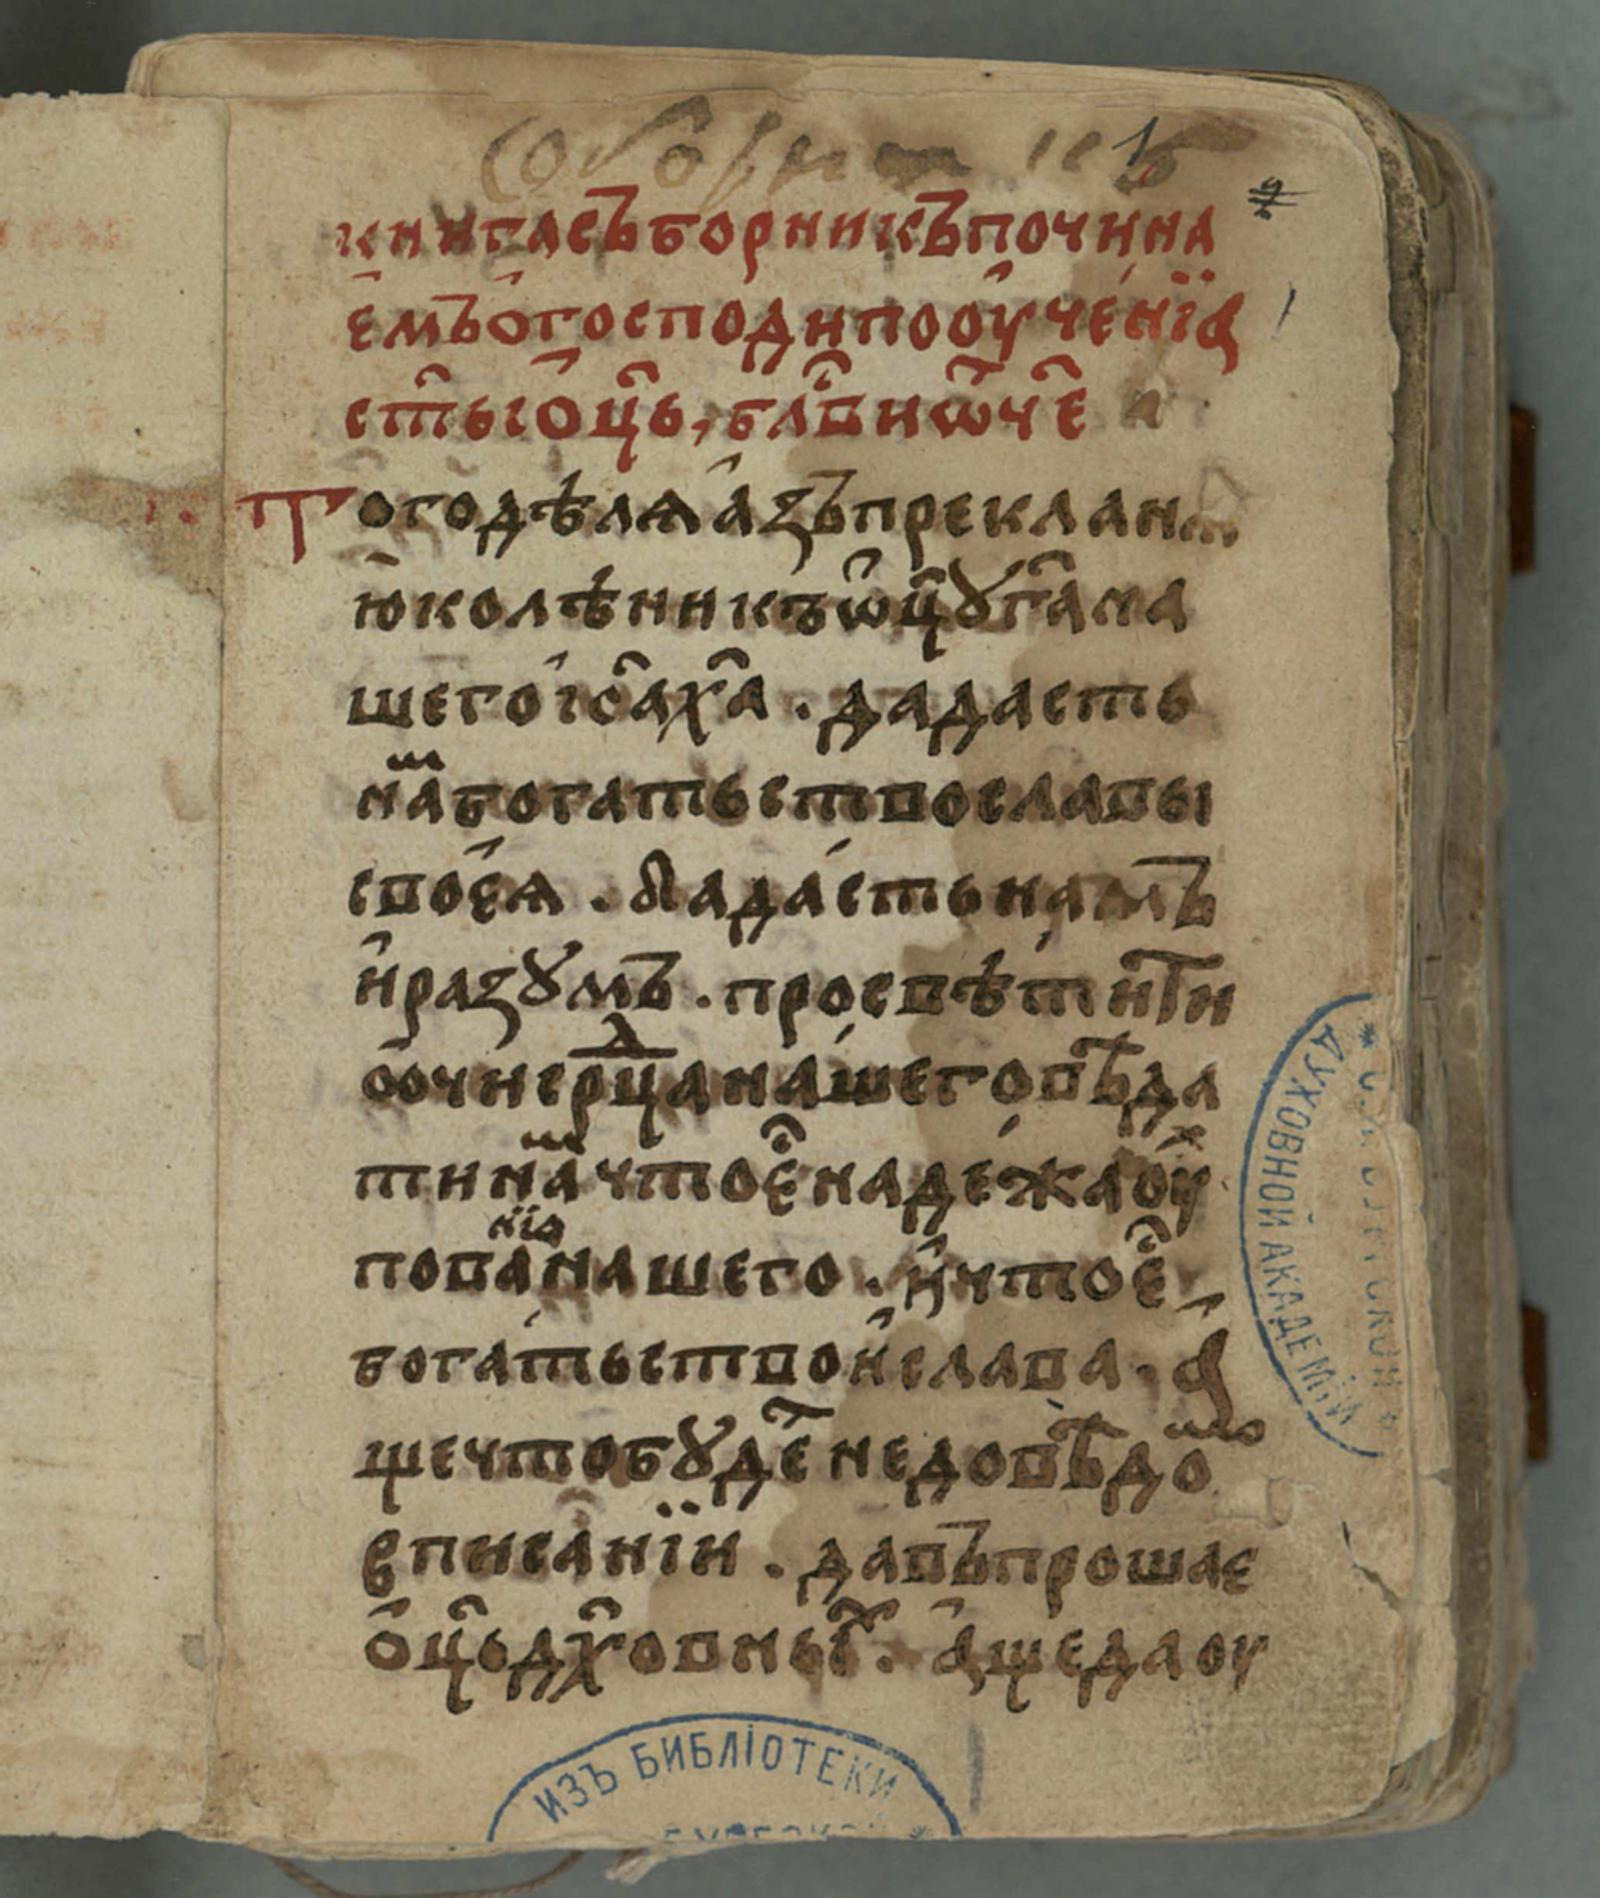 Соборникъ
1
книгасъборникъпочина
емъогосподипооученїꙗ
ст҃ыіоц҃ь, бл҃виѡч҃е
Тогодѣлѧазъпреклан
юколѣникъѡц҃ꙋг҃ана
шегоіс҃ах҃а . дадасть
наⷲ҇богатьствославы
своеѧ . Дадастьнамъ
иразꙋмъ . просвѣтити
оочисрⷣцанашеговѣда
тинаⷲ҇чтое҃надежаоу
пованїѧнашего . ичтое҃
богатьствоислава . ꙗ
щечтобꙋдеⷮнедовѣдо
вписанїи . давъпрошае
оц҃ьдх҃овныⷯ . ащедаоу
ДУХОВНОЙ АКАДЕМІИ
ИЗЪ БИБЛІОТЕКИ